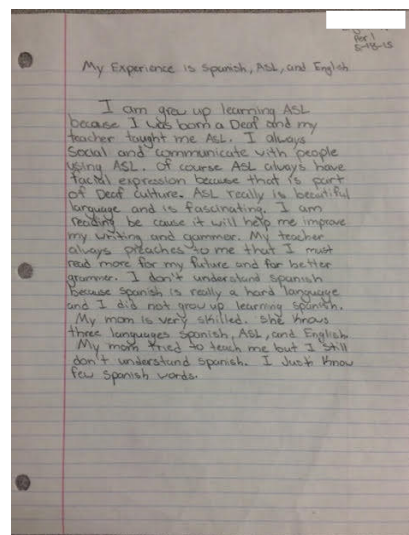 Per 1
5-18-15
My Experience is Spanish, ASL, and English
I am grew up learning ASL
because I was born a Deaf and my
teacher taught me ASL. I always
Social and communicate with people
using ASL. Of course ASL always have
facial expression because that is part
of Deaf culture. ASL really is beautiful
language and is fascinating. I am
reading be cause it will help me improve
my writing and gammer. My teacher
always preaches to me that I must
read more for my future and for better
grammer. I don't understand spanish
because spanish is really a hard language
and I did not grow up learning spanish.
My mom is very skilled. She knows
three languages spanish, ASL, and English.
My mom tried to teach me but I still
don't understand spanish. I Just know
few spanish words.